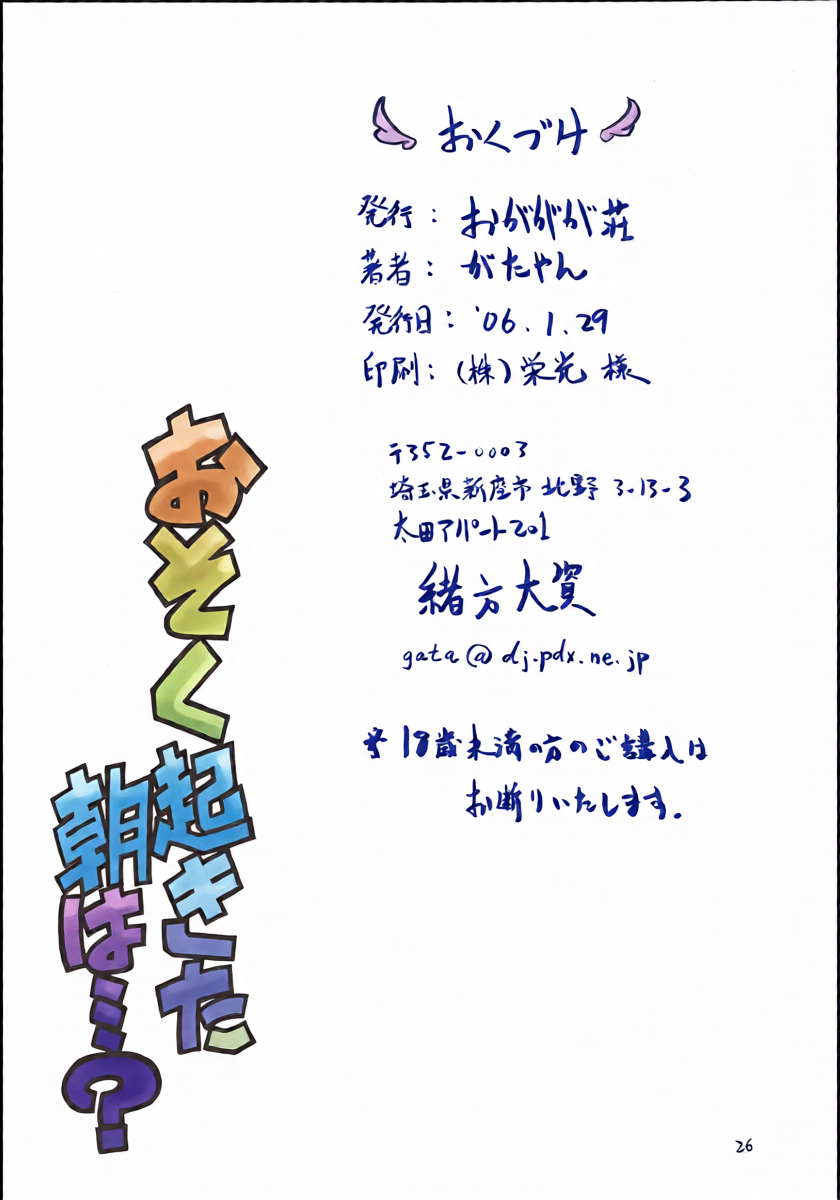 おくづけ
発行：おががが荘
著者：がたやん
発行日：'06.1.29
印刷：(株)栄光 様
〒352-0003
埼玉県新座市北野 3-13-3
太田アパート201
緒方大資
gata@dj.pdx.ne.jp
18歳未満の方のご購入は
お断りいたします。
おそく
起きた
朝は…?
26